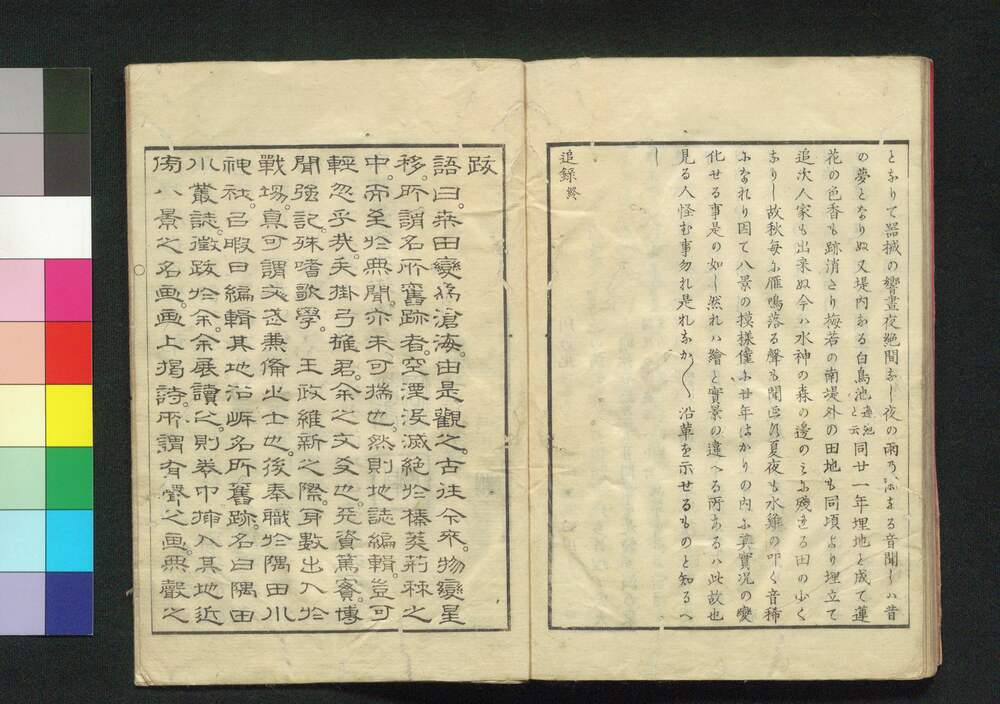 となりて器械の響晝夜絶間なし夜の雨乃たまる音聞しハ昔
の夢となりぬ又堤内なる白鳥池蓮池と云同廿一年埋地と成て蓮
花の色香も跡消たり梅若の南堤外の田地も同頃より埋立て
追次人家も出来ぬ今ハ水神の森の邊のミに殘れる田の少く
なりし故秋毎に雁鳴落る聲も聞へす夏夜も水雞の叩く音稀
になれり因て八景の摸樣僅に廿年はかりの内に眞實况の變
化せる事是の如し然れハ繪と實景の違へる所あるハ此故也
見る人怪む事勿れ是れなかく沿革を示せるものと知るへ
し
追録終
跋
語曰。桒田變為滄海。由是觀之。古往今來。物變星
移。所謂名所舊跡者。空湮沒滅絶於榛莽荊棘之
中。而至於無聞。亦未可揣也。然則地誌編輯。豈可
輕忽乎哉。矢掛弓雄君。余之文友也。天資篤實。博
聞強記。殊嗜歌學。王政維新之際。身數出入於
戰場。真可謂文武兼備之士也。後奉職於隅田川
神社。公暇曰編輯其地沿革名所舊跡。名曰隅田
川叢誌。徵跋於余。余展讀之。則卷中挿入其地近
傍八景之名画。画上揭詩。所謂有聲之画。無聲之